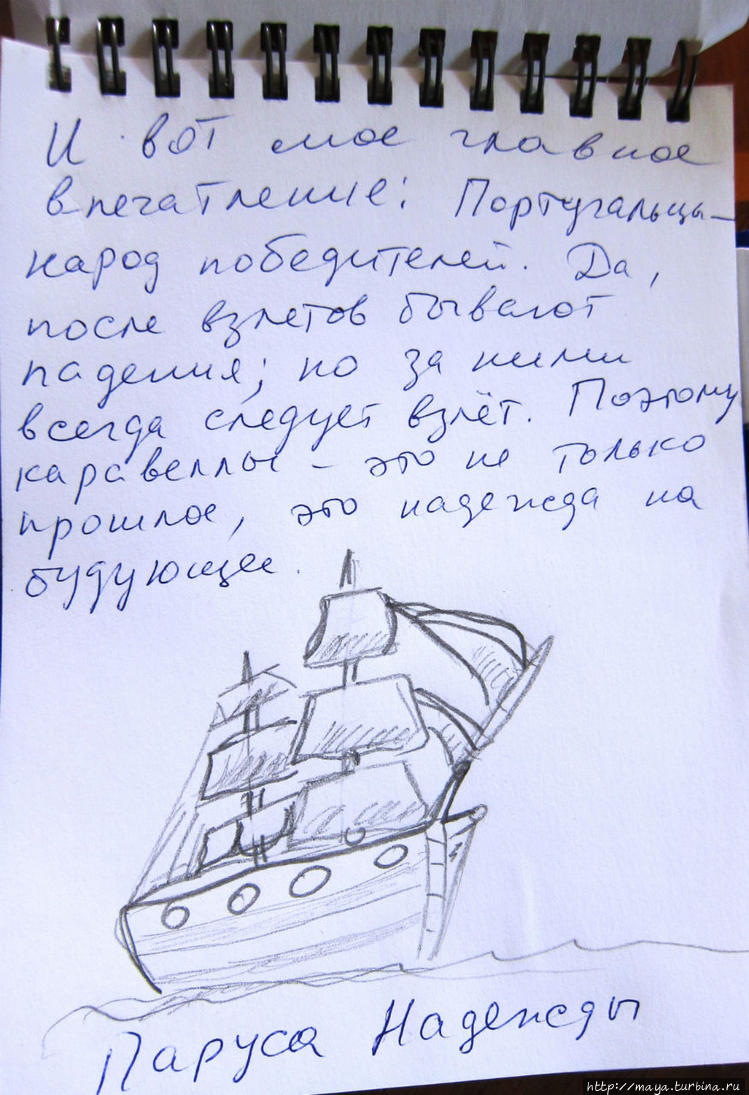 И вот мое главное
впечатление: Португальцы –
народ победителей. Да,
после взлетов бывают
падения; но за ними
всегда следует взлёт. Поэтому
каравеллы – это не только
прошлое, это надежда на
будующее.
Паруса Надежды
http://maya.turbina.ru